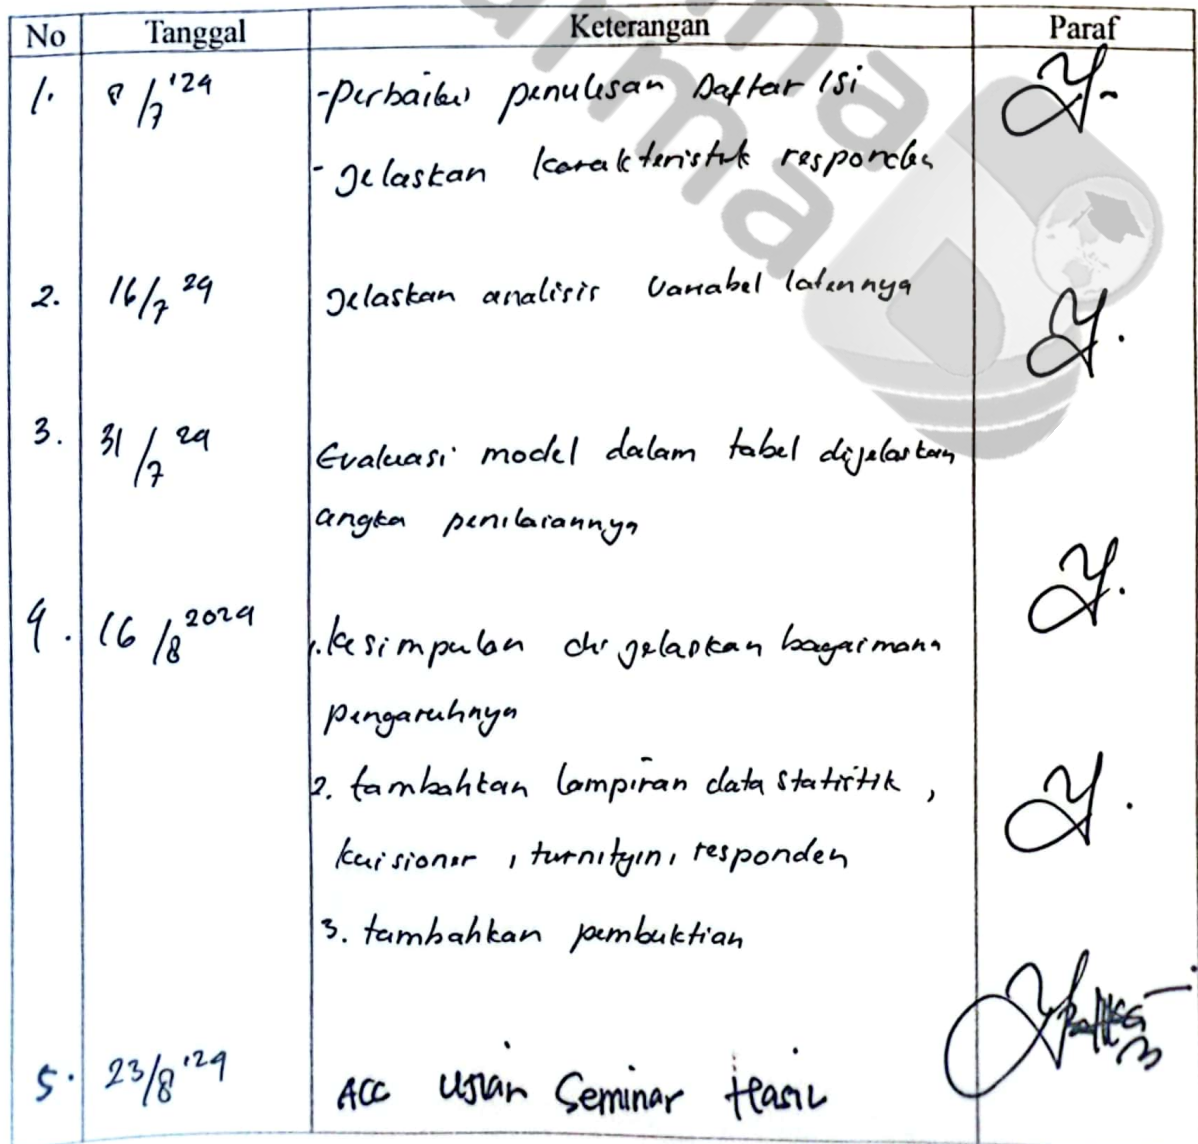 No Tanggal Keterangan Paraf
1. 8/7 '24 -Perbaiki penulisan Daftar Isi
- Jelaskan karakteristik responden
2. 16/7 24 Jelaskan analisis Variabel latennya
3. 31/7 24 Evaluasi model dalam tabel dijelaskan
angka penilaiannya
4. 16/8 2024 1. kesimpulan di jelaskan bagaimana
pengaruhnya
2. tambahkan lampiran data statistik,
kuisioner, turnityin, responden
3. tambahkan pembuktian
5. 23/8 '24 ACC Ujian Seminar Hasil